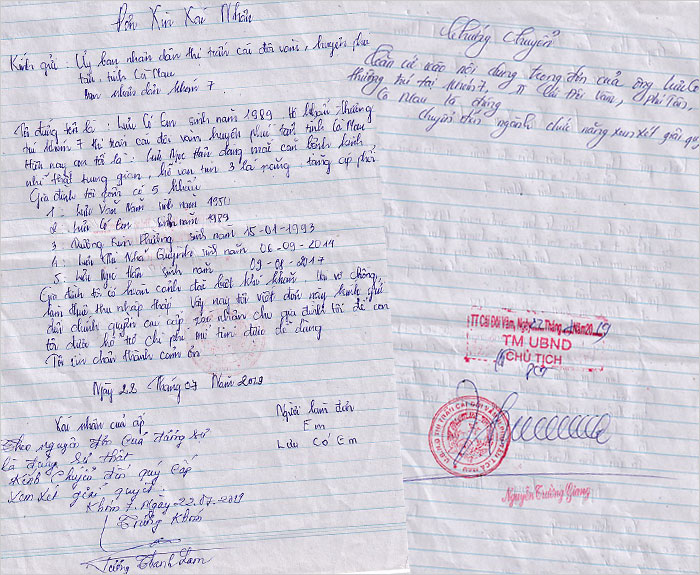 Đơn Xin Xác Nhân
Kính gửi: Uỷ ban nhân dân thị trấn cái đôi vàm, huyện phú
tân, tỉnh Cà Mau
Ban nhân dân khóm 7.
Tôi đứng tên là: Lưu Có Em sinh năm 1989 Hộ khẩu thường
trú khóm 7 thị trấn cái đôi vàm huyện phú tân tỉnh cà Mau
Hiện nay con tôi là: Lưu Ngọc Hân đang mắc căn bệnh
thất trung gian, hở van tim 3 lá nặng tăng áp phổi
Gia đình tôi gồm có 5 khẩu
1. Lưu Văn Năm sinh năm 1950
2. Lưu Có Em sinh năm 1989
3. Dương Kim Phường sinh năm 15-01-1993
4. Lưu Thị Như Quỳnh sinh năm 06-09-2014
5. Lưu Ngọc Hân sinh năm 09-08-2017
Gia đình tôi có hoàn cảnh đặc biệt khó khăn vợ chồng
làm thuê thu nhập thấp Vậy nay tôi viết đơn này kính gửi
đến chính quyền các cấp xác nhân cho gia đình tôi để con
tôi được hổ trợ chi phí mổ tim được dể dàng
Tôi xin chân thành cảm ơn
Ngày 22 Tháng 07 Năm 2019
Xác nhân của ấp
Người làm đơn
Em
Lưu Có Em
Theo nguyên đơn của đương sự
là đúng sự thật
kính chuyển đến quý cấp
Xem xét giải quyết
Khóm 7. Ngày 22.07.2019
Trưởng Khóm
Trương Thanh Lam
Chứng chuyển
Căn cứ vào nội dung trong đơn của ông Lưu Có
thường trú tại khóm 7, TT Cái Đôi Vàm, Phú Tân,
Cà Mau là đúng
Chuyển đến ngành chức năng xem xét giải quyết
TT Cái Đôi Vàm, Ngày 22 Tháng Năm 2019
TM UBND
CHỦ TỊCH
PCT
Nguyễn Trường Giang